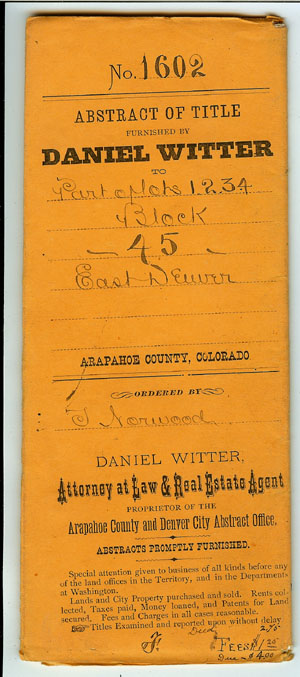 No. 1602
ABSTRACT OF TITLE
FURNISHED BY
DANIEL WITTER
TO
Part of lots 1 2 3 4
Block
45
East Denver
ARAPAHOE COUNTY, COLORADO
ORDERED BY
Norwood
DANIEL WITTER,
Attorney at Law & Real Estate Agent
PROPRIETOR OF THE
Arapahoe County and Denver City Abstract Office,
ABSTRACTS PROMPTLY FURNISHED.
Special attention given to business of all kinds before any
of the land offices in the Territory, and in the Departments
at Washington.
Lands and City Property purchased and sold. Rents col-
lected, Taxes paid, Money loaned, and Patents for Land
secured. Fees and Charges in all cases reasonable.
Titles Examined and reported upon without delay
Deed
FEES,
Due $4.00